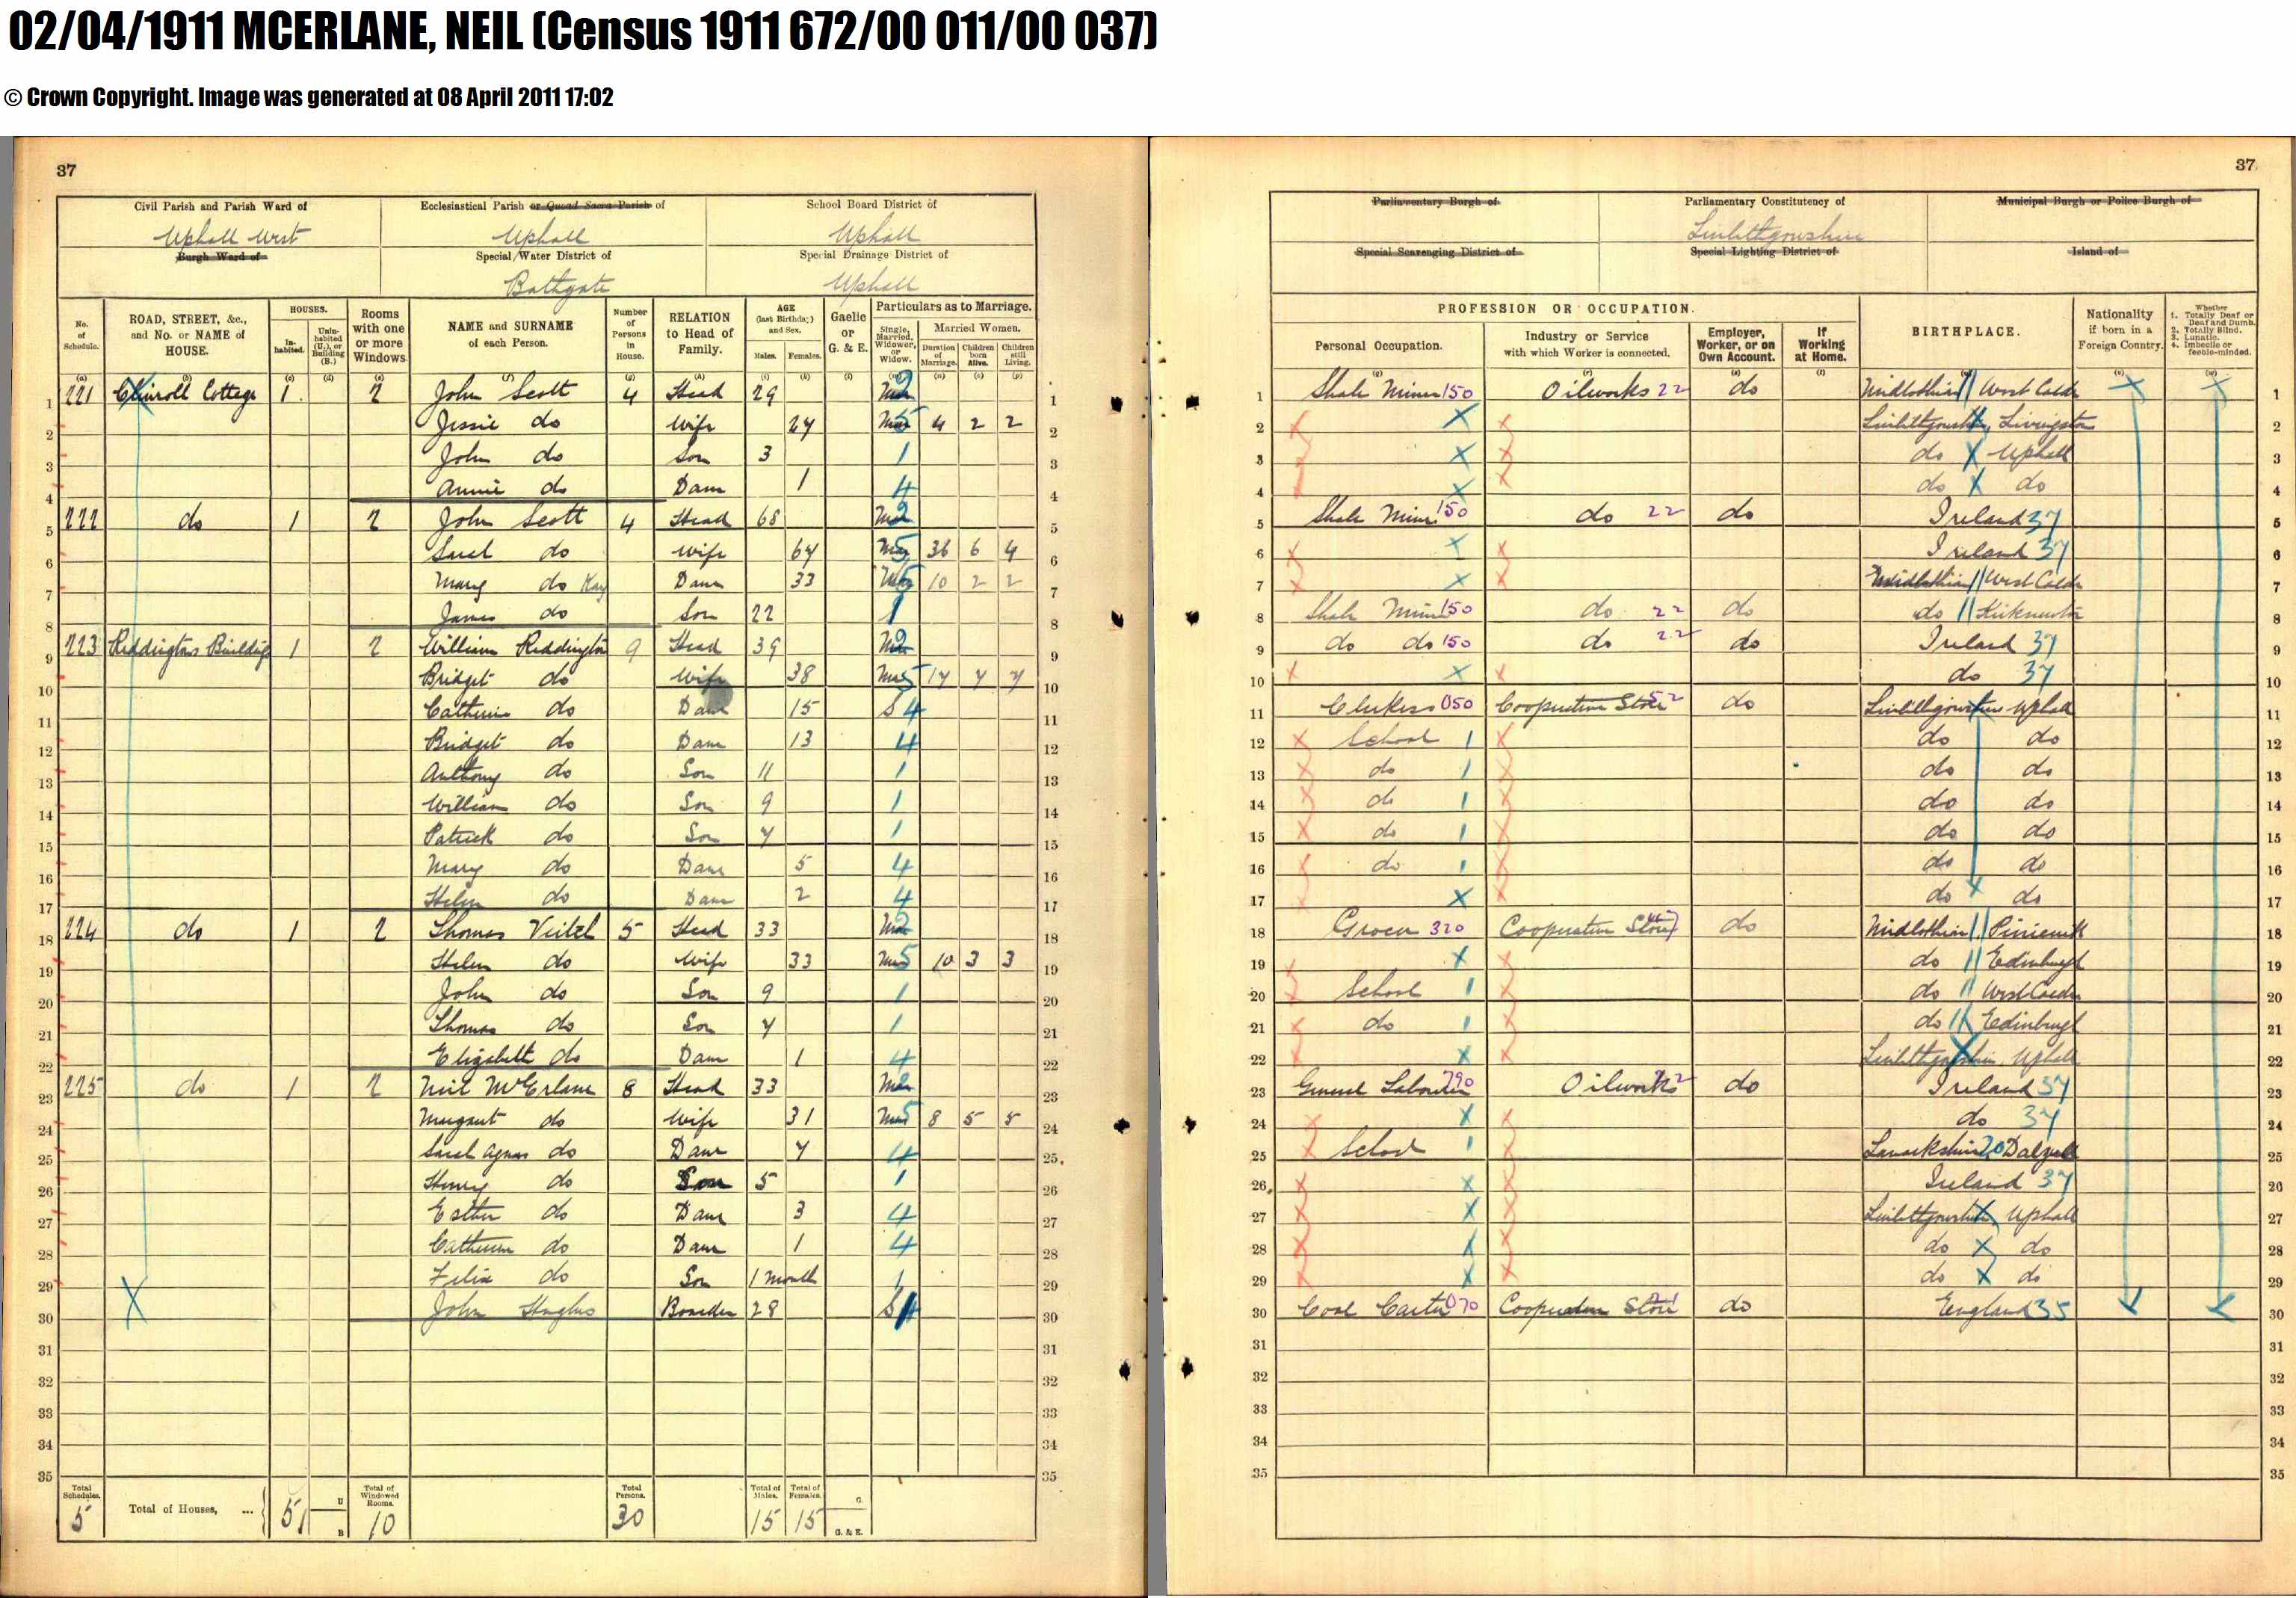 02/04/1911 MCERLANE, NEIL (Census 1911 672/00 011/00 037)
© Crown Copyright. Image was generated at 08 April 2011 17:02
37
37
Civil Parish and Parish Ward of
Uphall West
Ecclesiastical Parish or Quoad Sacra Parish of
Uphall
School Board District of
Uphall
Burgh Ward of
Special Water District of
Bathgate
Special Drainage District of
Uphall
Parliamentary Burgh of
Parliamentary Constitutency of
Linlithgowshire
Municipal Burgh or Police Burgh of
Special Scavenging District of
Special Lighting District of
Island of
No. of Schedule.
ROAD, STREET, &c., and No. or NAME of HOUSE.
HOUSES.
Inhabited.
Uninhabited (U.), or Building (B.)
Rooms with one or more Windows
NAME and SURNAME of each Person.
Number of Persons in House.
RELATION to Head of Family.
AGE (last Birthday) and Sex.
Males.
Females.
Gaelic or G. & E.
Particulars as to Marriage.
Single, Married, Widower, or Widow.
Married Women.
Duration of Marriage.
Children born Alive.
Children still Living.
PROFESSION OR OCCUPATION.
Personal Occupation.
Industry or Service with which Worker is connected.
Employer, Worker, or on Own Account.
If Working at Home.
BIRTHPLACE.
Nationality if born in a Foreign Country.
Whether 1. Totally Deaf or Deaf and Dumb. 2. Totally Blind. 3. Lunatic. 4. Imbecile or feeble-minded.
1 221 Cottage 1 2 John Scott 4 Head 29 Mar 2 1 Shale Miner 150 Oilworks 22 do Midlothian West Calder
2 Jessie do Wife 24 Mar 5 4 2 2 2 Linlithgowshire, Livingston
3 John do Son 3 1 3 do Uphall
4 Annie do Daur 1 4 4 do do
5 222 do 1 2 John Scott 4 Head 68 Mar 2 5 Shale Miner 150 do 22 do Ireland 37
6 Sarah do Wife 64 Mar 5 36 6 4 6 Ireland 37
7 Mary do Kay Daur 33 Mar 5 10 2 2 7 Midlothian West Calder
8 James do Son 22 1 8 Shale Miner 150 do 22 do do Kirknewton
9 223 Reddingtons Buildings 1 2 William Reddington 9 Head 39 Mar 2 9 do do 150 do 22 do Ireland 37
10 Bridget do Wife 38 Mar 5 17 7 7 10 do 37
11 Catherine do Daur 15 S 4 11 Clerkess 050 Cooperative Store 52 do Linlithgowshire Uphall
12 Bridget do Daur 13 4 12 School 1 do do
13 Anthony do Son 11 1 13 do 1 do do
14 William do Son 9 1 14 do 1 do do
15 Patrick do Son 7 1 15 do 1 do do
16 Mary do Daur 5 4 16 do 1 do do
17 Helen do Daur 2 4 17 do do
18 224 do 1 2 Thomas Veitch 5 Head 33 Mar 2 18 Grocer 320 Cooperative Store do Midlothian Penicuik
19 Helen do Wife 33 Mar 5 10 3 3 19 do Edinburgh
20 John do Son 9 1 20 School 1 do West Calder
21 Thomas do Son 7 1 21 do 1 do Edinburgh
22 Elizabeth do Daur 1 4 22 Linlithgowshire, Uphall
23 225 do 1 2 Neil McErlane 8 Head 33 Mar 2 23 General Labourer 790 Oilworks 22 do Ireland 37
24 Margaret do Wife 31 Mar 5 8 5 5 24 do 37
25 Sarah Agnes do Daur 7 4 25 School 1 Lanarkshire 20 Dalziel
26 Henry do Son 5 1 26 Ireland 37
27 Esther do Daur 3 4 27 Linlithgowshire, Uphall
28 Catherine do Daur 1 4 28 do do
29 Felix do Son 1 month 1 29 do do
30 John Hughes Boarder 28 S 1 30 Coal Carter 070 Cooperative Store do England 35
31
32
33
34
35
Total Schedules. 5
Total of Houses, ... 5 U B
Total of Windowed Rooms. 10
Total Persons. 30
Total of Males. 15
Total of Females. 15
G.
G. & E.